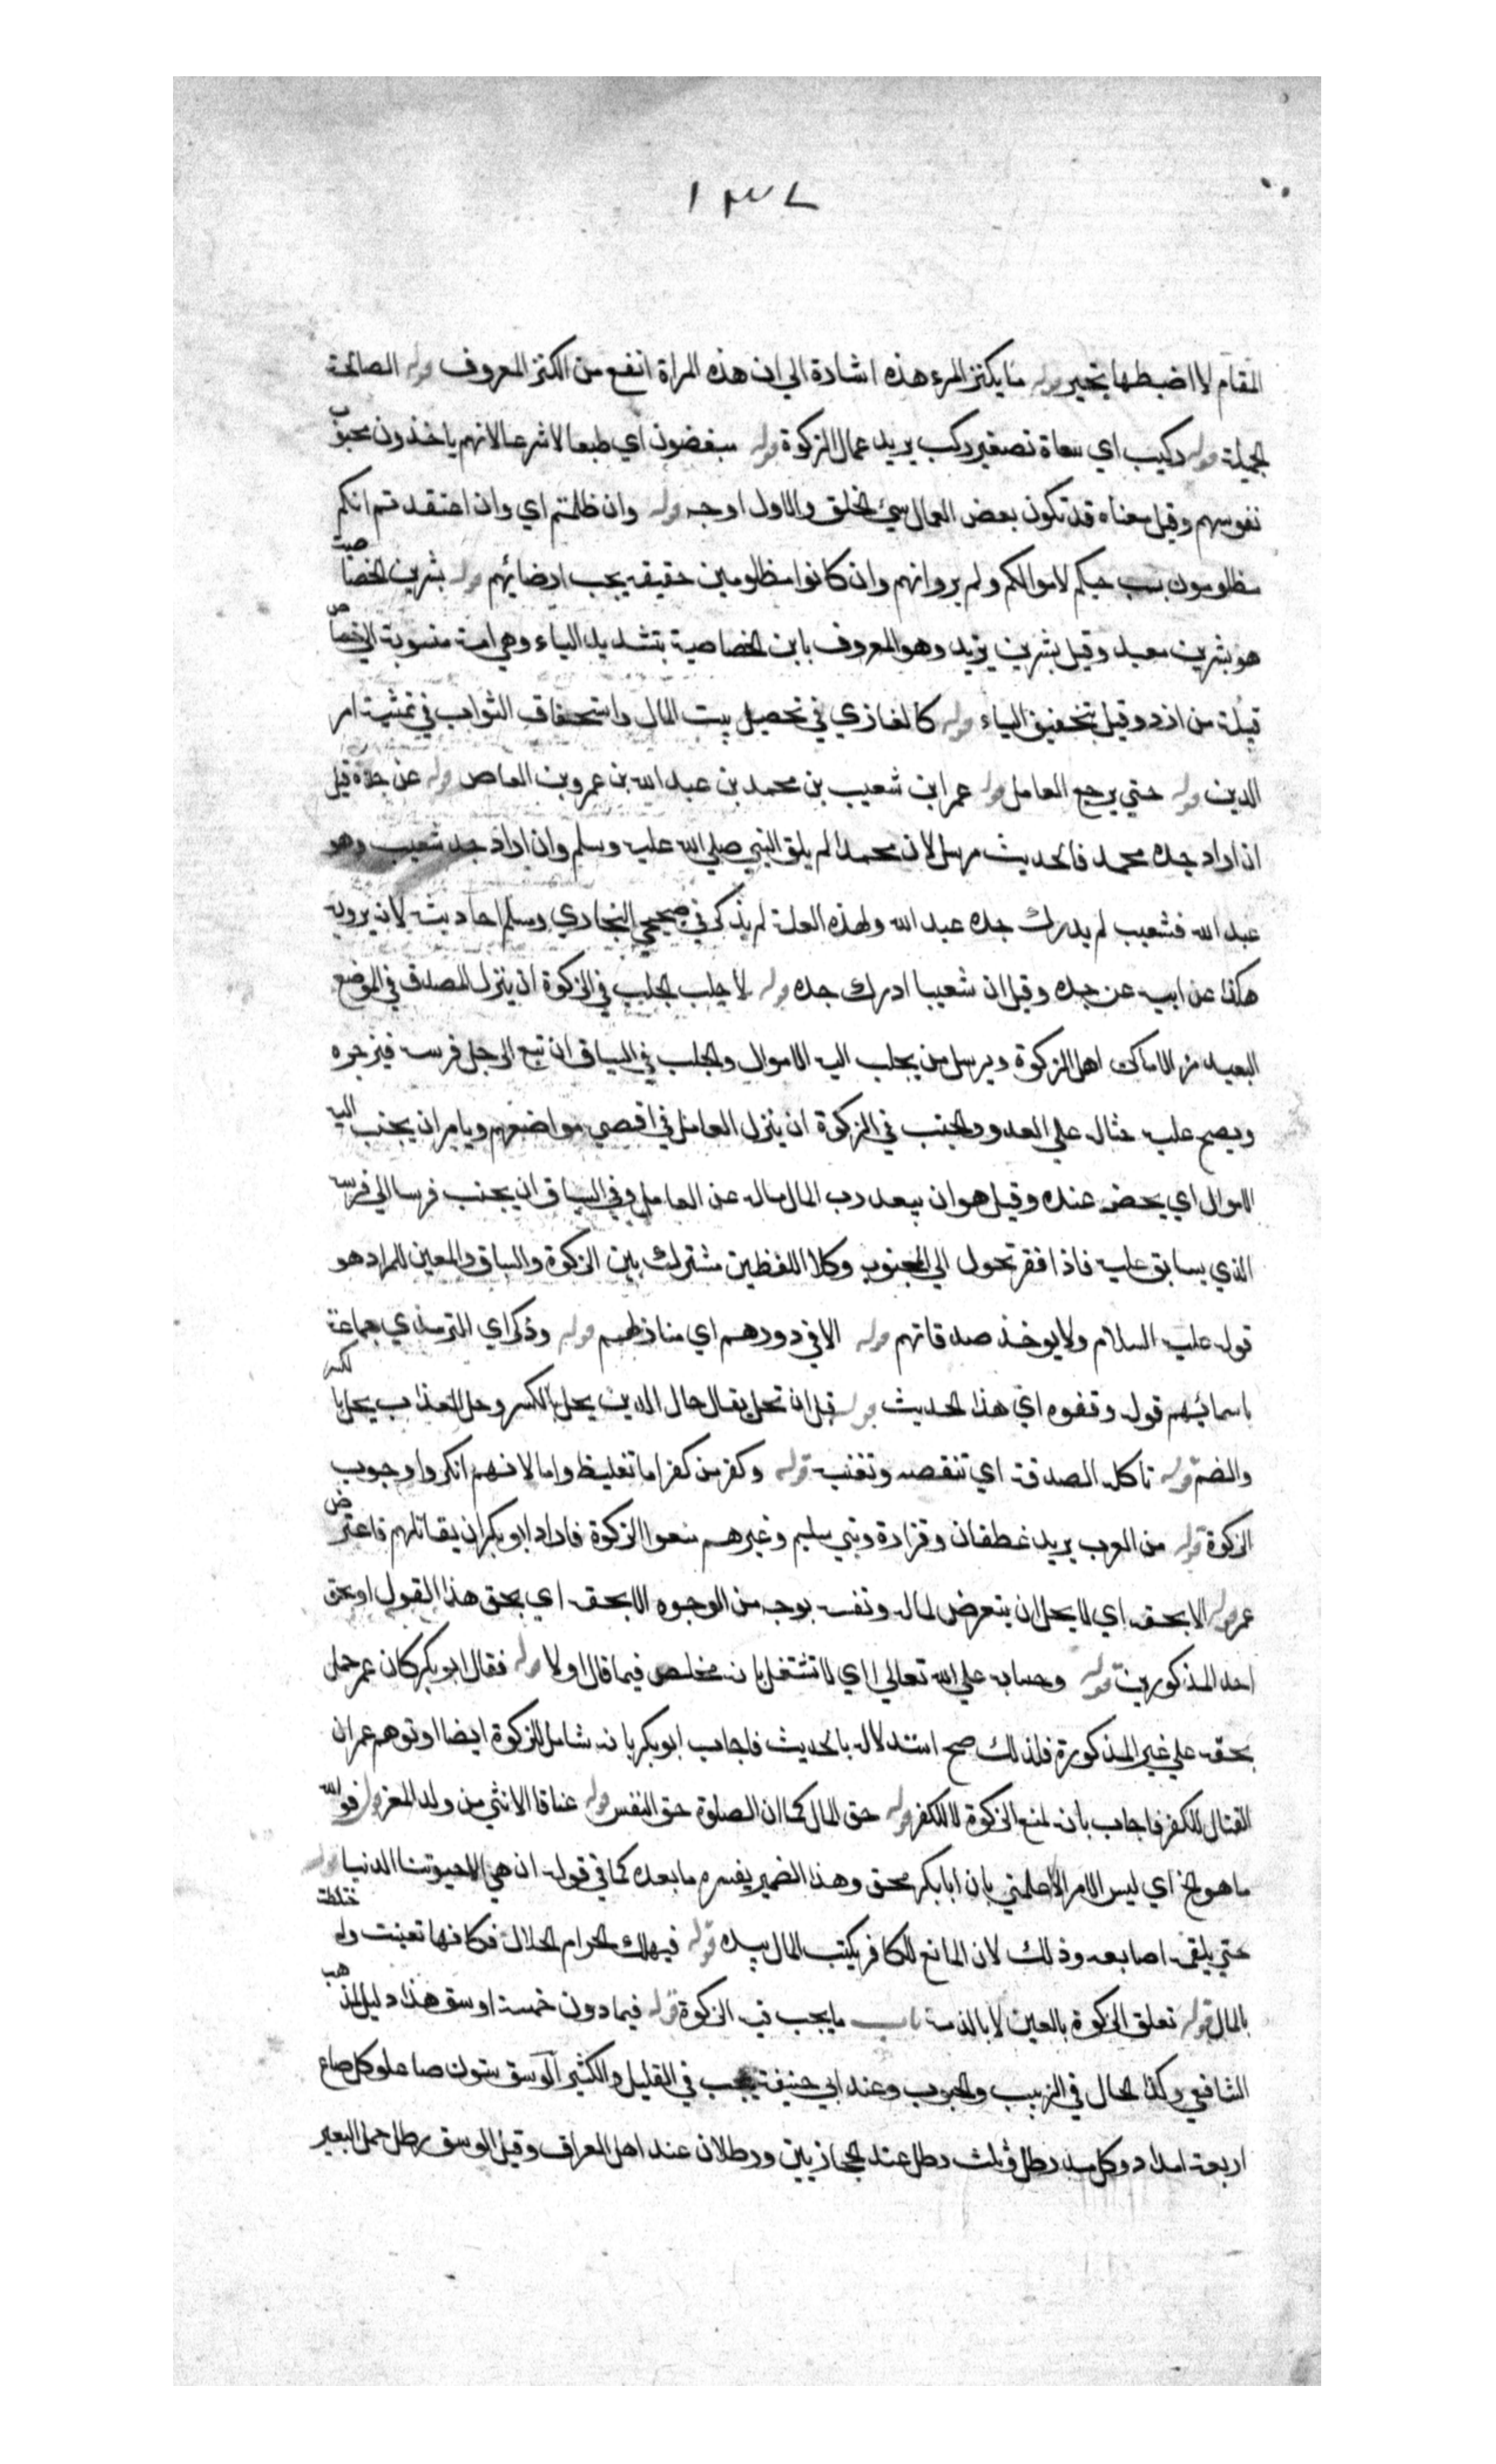 ١٣٧
المقام لا اضبطها بتحير قوله ما يكنز المرء هذه اشارة الي ان هذه المراة انفع من الكنز المعروف قوله الصالحة
الجميلة قوله ركيب اي سعاة تصغير ركب يريد عمال الزكوة قوله مبغضون اي طبعا لا شرعا لانهم ياخذون محبوب
نفوسهم وقيل معناه قد تكون بعض العمال سيئ الخلق والاول اوجه قوله وان ظلمتم اي وان اعتقدتم انكم
مظلومون بسبب حبكم لاموالكم ولم يرو انهم وان كانوا مظلومين حقيقة يجب ارضائهم قوله بشر بن الخصاصية
هو بشر بن معبد وقيل بشر بن يزيد وهو المعروف بابن الخصاصية بتشديد الياء وهي امه منسوبة الي خصاص
قبيلة من ازد وقيل بتخفيف الياء قوله كالغازي في تحصيل بيت المال واستحقاق الثواب في تمشية امر
الدين قوله حتي يرجع العامل قوله عمر ابن شعيب بن محمد بن عبد الله بن عمرو بن العاص قوله عن جده قيل
ان اراد جده محمد فالحديث مرسل لان محمدا لم يلق النبي صلي الله عليه وسلم وان اراد جد شعيب وهو
عبد الله فشعيب لم يدرك جده عبد الله ولهذه العلة لم يذكر في صحيحي البخاري ومسلم احاديثه لانه يرويه
هكذا عن ابيه عن جده وقيل ان شعيبا ادرك جده قوله لا جلب الجلب في الزكوة ان ينزل المصدق في الموضع
البعيد من الاماكن اهل الزكوة ويرسل من يجلب اليه الاموال والجلب في السباق ان تبع الرجل فرسه فيزجره
ويصيح عليه حثا له علي العدو والجنب في الزكوة ان ينزل العامل في اقصي مواضعهم ويامر ان يجنب اليه
الاموال اي يحضر عنده وقيل هو ان يبعد رب المال ماله عن العامل وفي السباق ان يجنب فرسا الي فرسه
الذي يسابق عليه فاذا افقر تحول الي المجنوب وكلا اللفظين مشترك بين الزكوة والسباق والمعين للمراد هو
قوله عليه السلام ولا يوخذ صدقاتهم قوله الا في دورهم اي منازلهم قوله وذكر اي الترمذي جماعة
باسمائهم قوله وقفوه اي هذا الحديث قوله قبل ان تحل يقال حال الدين يحل بالكسر وحل العذاب يحل بالكسر
والضم قوله تاكل الصدقة اي تنقصه وتفنيه قوله وكفر من كفر اما تغليظ واما لانهم انكروا وجوب
الزكوة قوله من العرب يريد غطفان وفزارة وبني سليم وغيرهم منعوا الزكوة فاراد ابو بكر ان يقاتلهم فاعترض
عمر قوله الا بحقه اي لا يحل ان يتعرض لماله ونفسه بوجه من الوجوه الا بحقه اي بحق هذا القول او بحق
احد المذكورين قوله وحسابه علي الله تعالي اي لا تشتغل بانه مخلص فيما قال او لا قوله فقال ابو بكر كان عمر حمل
بحقه علي غير المذكورة فلذلك صح استدلاله بالحديث فاجاب ابو بكر بانه شامل للزكوة ايضا او توهم عمر ان
القتال للكفر فاجاب بأنه لمنع الزكوة لا للكفر قوله حق المال كما ان الصلوة حق النفس قوله عناقا الانثي من ولد المعز قوله فوالله
ما هو الخ اي ليس الامر الا علمتي بان ابا بكر محق وهذا الضمير يفسره ما بعده كما في قوله ان هي الا حيوتنا الدنيا قوله
حتي يلقمه اصابعه وذلك لان المانع للكافر يكتب المال بيده قوله فيهلك الحرام الحلال فكانها تعينت واختلطت
بالمال قوله تعلق الزكوة بالعين لا بالذمة باب ما يجب فيه الزكوة قوله فيما دون خمسة اوسق هذا دليل لمذهب
الشافعي وكذا الحال في الزبيب والحبوب وعند ابي حنيفة يجب في القليل والكثير الوسق ستون صاعا وكل صاع
اربعة امداد وكل مد رطل وثلث رطل عند الحجازيين ورطلان عند اهل العراق وقيل الوسق رطل حمل البعير